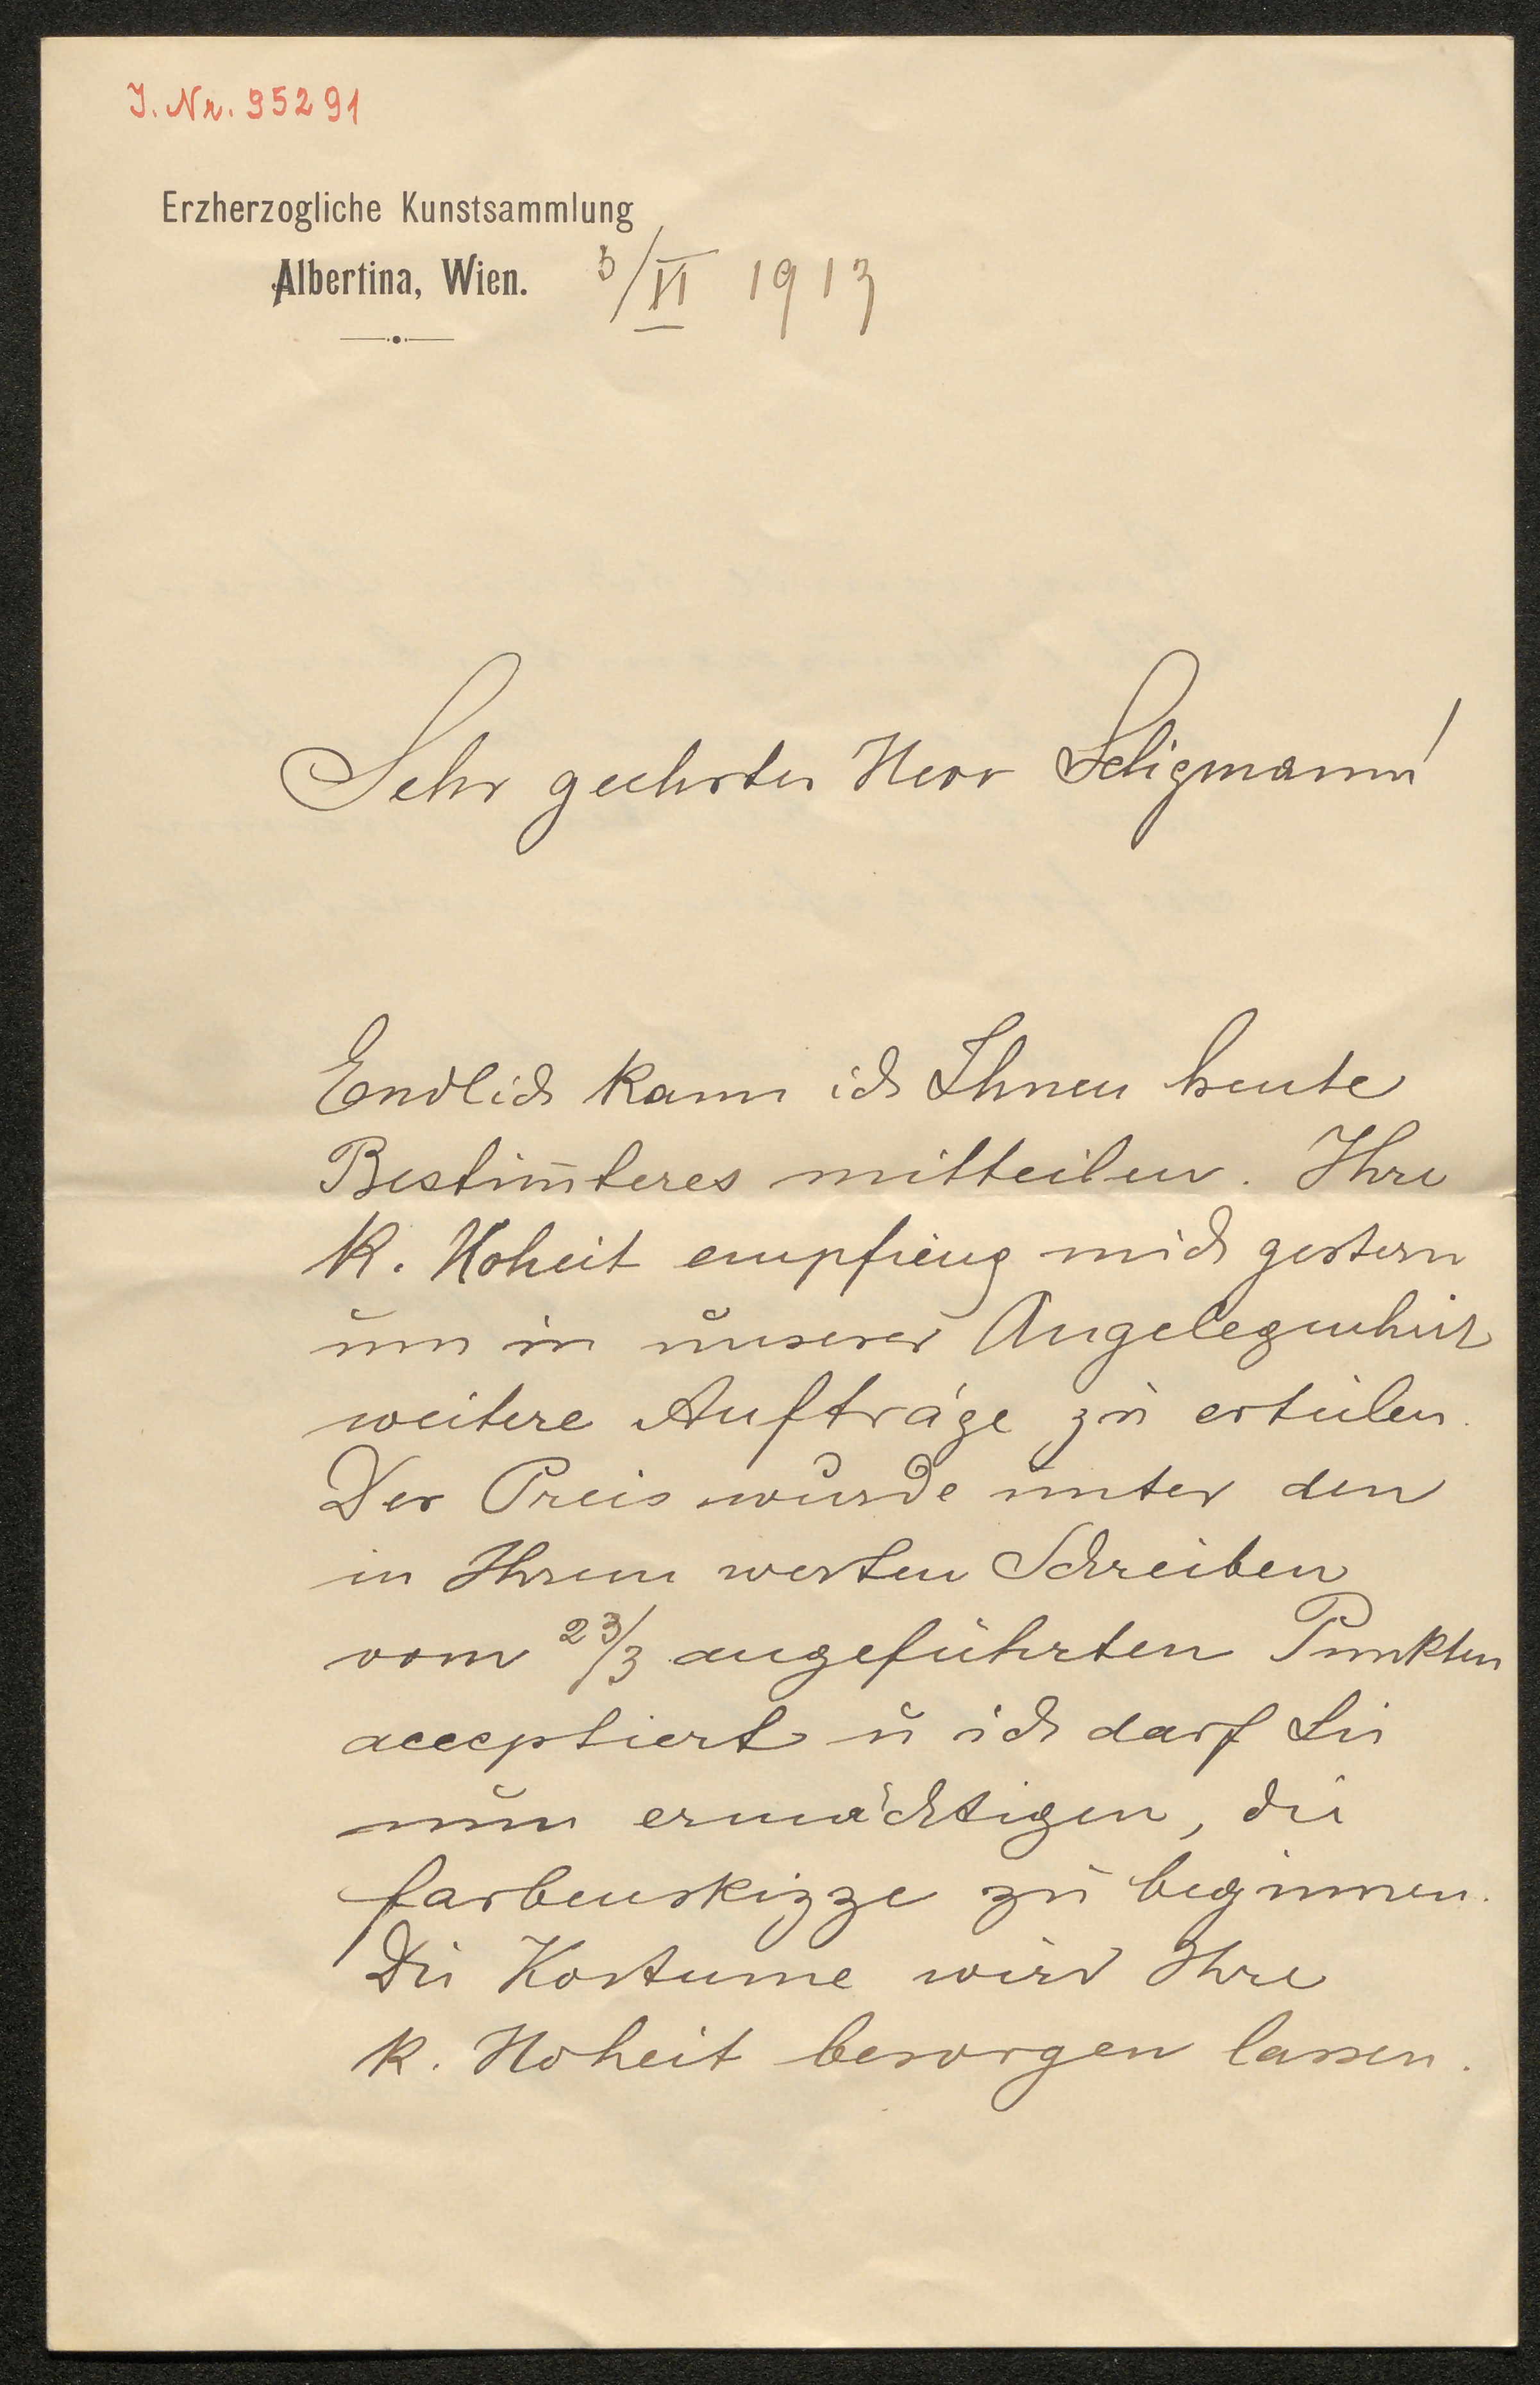 J. Nr. 95291
Erzherzogliche Kunstsammlung
Albertina, Wien. 3/VI 1913
Sehr geehrter Herr Seligmann!
Endlich kann ich Ihnen heute
Bestim̅teres mitteilen. Ihre
K. Hoheit empfieng mich gestern
um in unserer Angelegenheit
weitere Aufträge zu erteilen.
Der Preis wurde unter den
in Ihrem werten Schreiben
vom 23/3 angeführten Punkten
acceptiert u ich darf Sie
nun ermächtigen, die
Farbenskizze zu beginnen.
Die Kostume wird Ihre
K. Hoheit besorgen lassen.